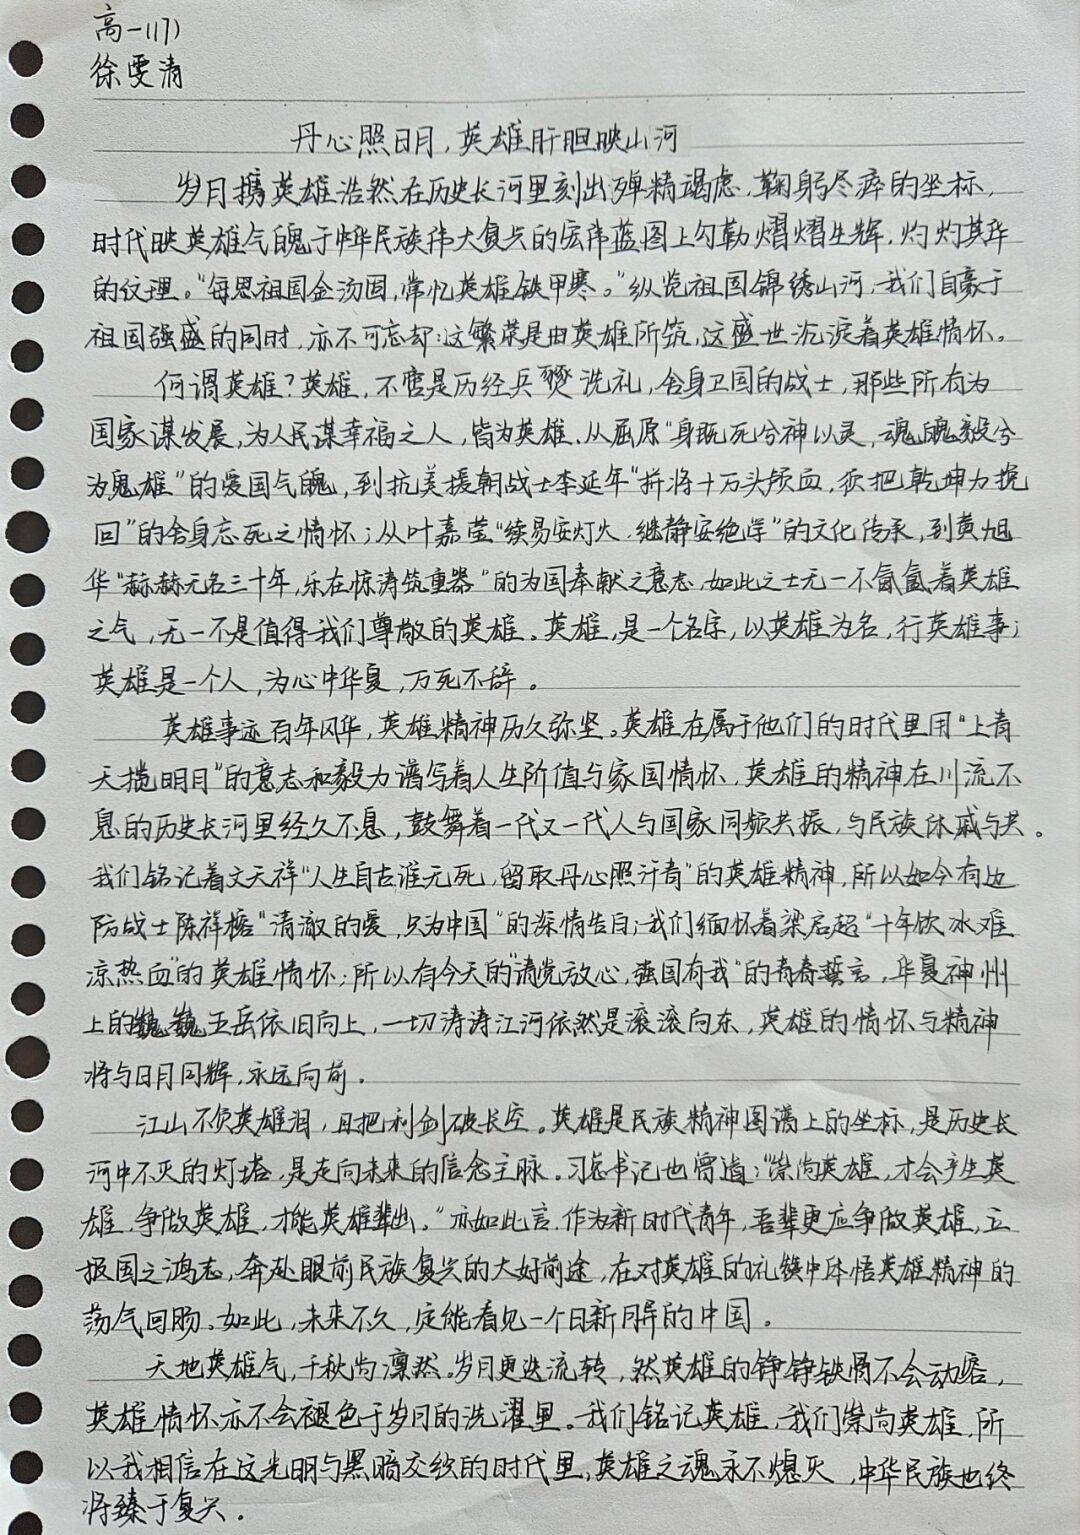 高一(17)
徐雯清
丹心照日月,英雄肝胆映山河
岁月携英雄浩然在历史长河里刻出殚精竭虑,鞠躬尽瘁的坐标,
时代映英雄气魄于中华民族伟大复兴的宏伟蓝图上勾勒熠熠生辉,灼灼其华
的纹理。“每思祖国金汤固,常忆英雄铁甲寒。”纵览祖国锦绣山河,我们自豪于
祖国强盛的同时,亦不可忘却:这繁荣是由英雄所筑,这盛世沉淀着英雄情怀。
何谓英雄?英雄,不啻是历经兵燹洗礼,舍身卫国的战士,那些所有为
国家谋发展,为人民谋幸福之人,皆为英雄.从屈原“身既死兮神以灵,魂魄毅兮
为鬼雄”的爱国气魄,到抗美援朝战士李延年“拼将十万头颅血,须把乾坤力挽
回”的舍身忘死之情怀;从叶嘉莹“续易安灯火,继静安绝学”的文化传承,到黄旭
华“赫赫无名三十年,乐在惊涛筑重器”的为国奉献之意志,如此之士无一不氤氲着英雄
之气,无一不是值得我们尊敬的英雄。英雄,是一个名字,以英雄为名,行英雄事;
英雄是一个人,为心中华夏,万死不辞。
英雄事迹百年风华,英雄精神历久弥坚。英雄在属于他们的时代里用“上青
天揽明月”的意志和毅力谱写着人生价值与家国情怀,英雄的精神在川流不
息的历史长河里经久不息,鼓舞着一代又一代人与国家同频共振,与民族休戚与共。
我们铭记着文天祥“人生自古谁无死,留取丹心照汗青”的英雄精神,所以如今有边
防战士陈祥榕“清澈的爱,只为中国”的深情告白;我们缅怀着梁启超“十年饮冰难
凉热血”的英雄情怀;所以有今天的“请党放心,强国有我”的青春誓言,华夏神州
上的巍巍五岳依旧向上,一切涛涛江河依然是滚滚向东,英雄的情怀与精神
将与日月同辉,永远向前。
江山不负英雄泪,且把利剑破长空。英雄是民族精神图谱上的坐标,是历史长
河中不灭的灯塔,是走向未来的信念主脉。习总书记也曾道:“崇尚英雄,才会产生英
雄,争做英雄,才能英雄辈出。”亦如此言,作为新时代青年,吾辈更应争做英雄,立
报国之鸿志,奔赴眼前民族复兴的大好前途,在对英雄的礼赞中体悟英雄精神的
荡气回肠。如此,未来不久,定能看见一个日新月异的中国。
天地英雄气,千秋尚凛然。岁月更迭流转,然英雄的铮铮铁骨不会动摇,
英雄情怀亦不会褪色于岁月的洗濯里。我们铭记英雄,我们崇尚英雄,所
以我相信在这光明与黑暗交织的时代里,英雄之魂永不熄灭,中华民族也终
将臻于复兴。